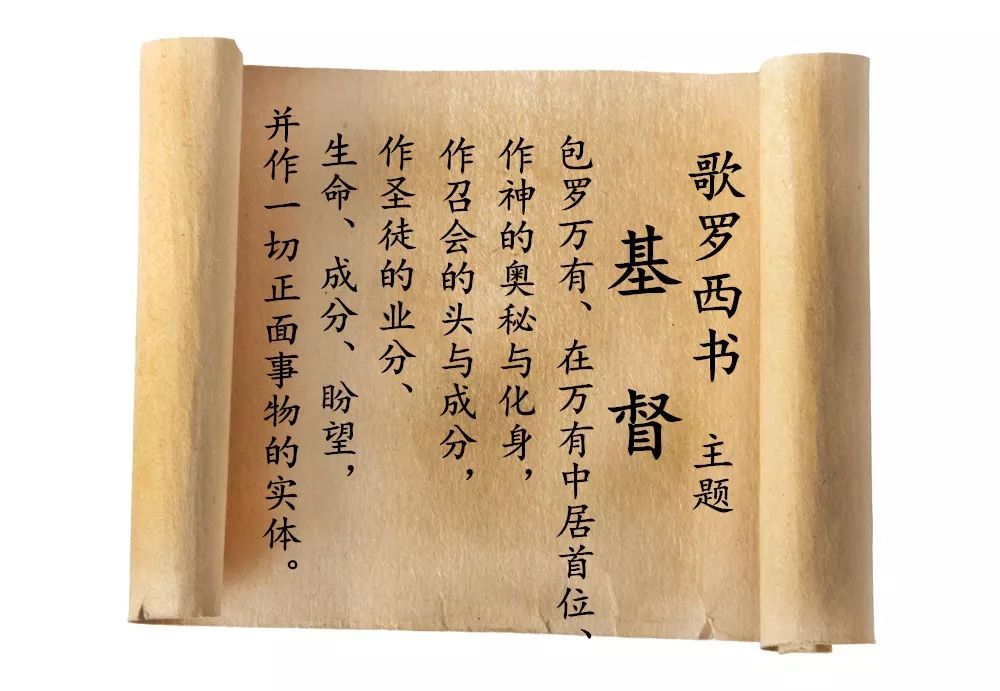 歌罗西书 主题
基督
包罗万有、在万有中居首位、
作神的奥秘与化身，
作召会的头与成分，
作圣徒的业分、
生命、成分、盼望，
并作一切正面事物的实体。